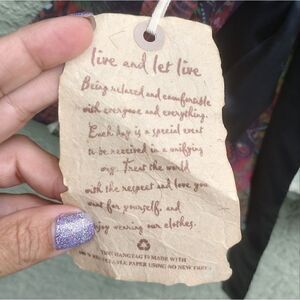 live and let live
Being relaxed and comfortable
with everyone and everything.
Each day is a special event
to be received in a unifying
way. Treat the world
with the respect and love you
want for yourself, and
enjoy wearing our clothes.
THIS HANGTAG IS MADE WITH
100% RECYCLABLE PAPER USING NO NEW TREES